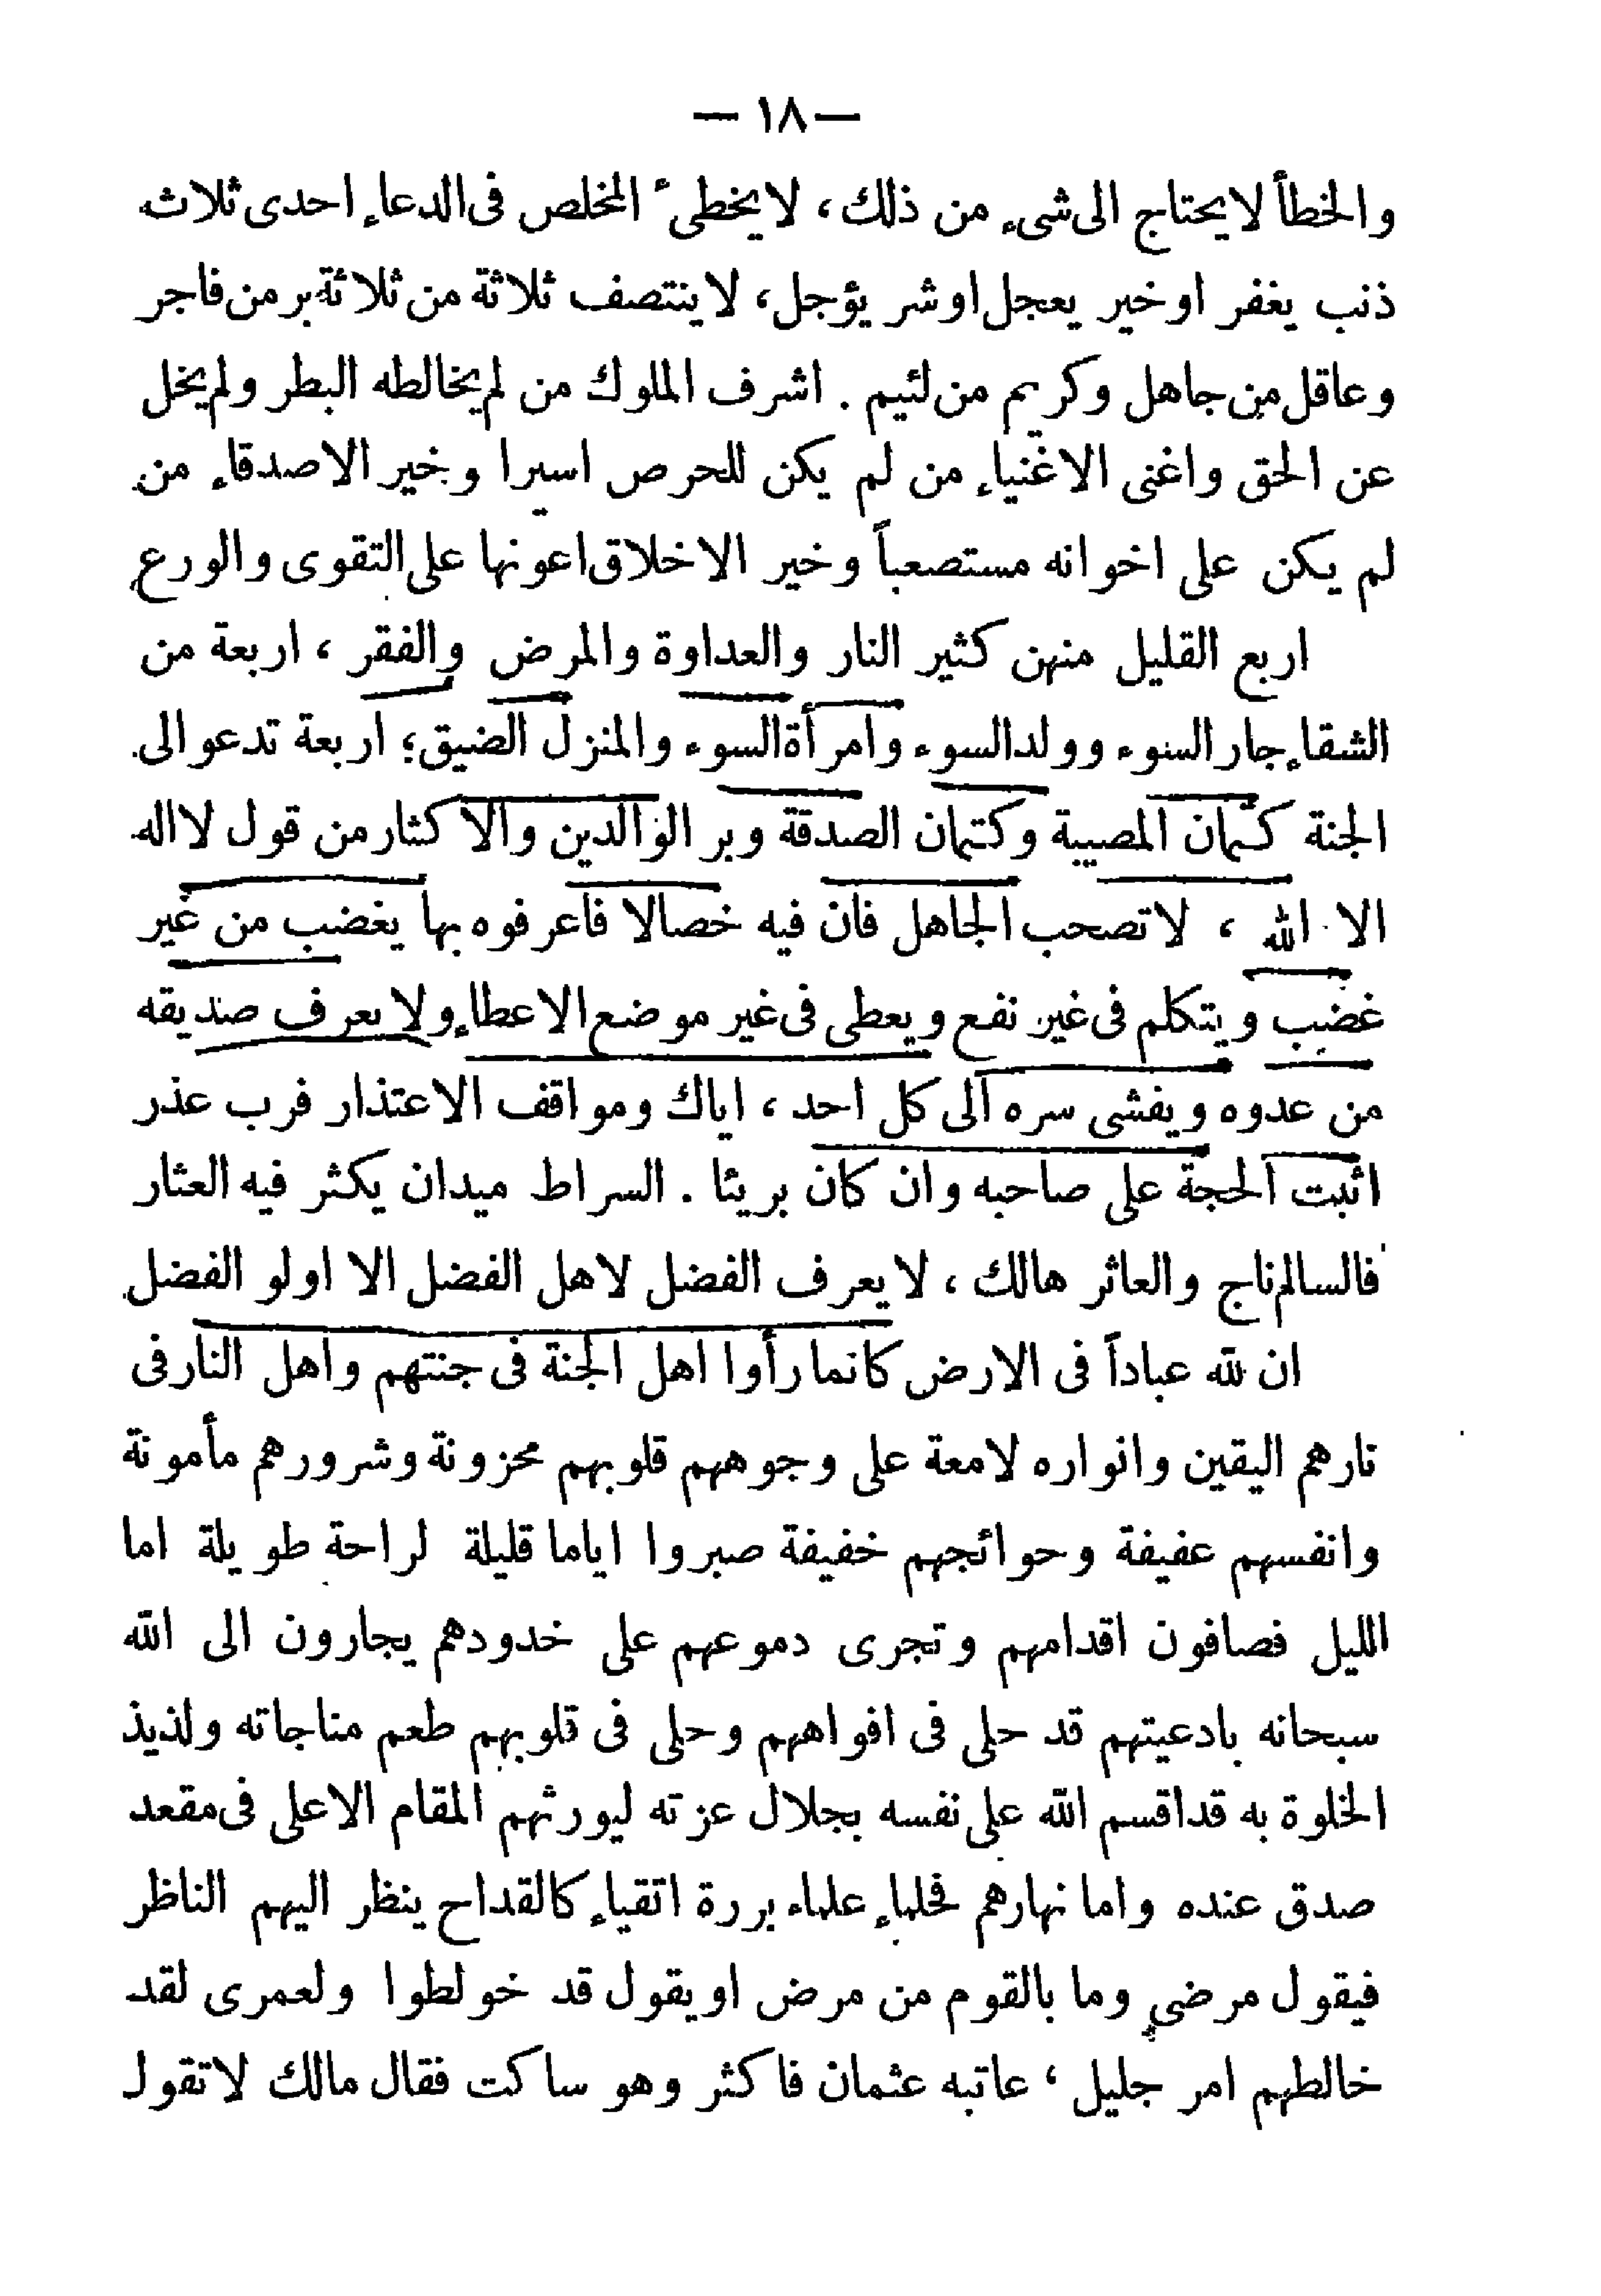 — ١٨ —
والخطأ لايحتاج الى شىء من ذلك، لايخطىء المخلص فى الدعاء احدى ثلاث
ذنب يغفر اوخير يعجل اوشر يؤجل، لاينتصف ثلاثة من ثلاثة بر من فاجر
وعاقل من جاهل وكريم من لئيم . اشرف الملوك من لم يخالطه البطر ولم يخل
عن الحق واغنى الاغنياء من لم يكن للحرص اسيرا وخير الاصدقاء من
لم يكن على اخوانه مستصعباً وخير الاخلاق اعونها على التقوى والورع
اربع القليل منهن كثير النار والعداوة والمرض والفقر ، اربعة من
الشقاء جار السوء وولد السوء وامرأة السوء والمنزل الضيق؛ اربعة تدعو الى
الجنة كتمان المصيبة وكتمان الصدقة وبر الوالدين والاكثار من قول لااله
الا الله ، لاتصحب الجاهل فان فيه خصالا فاعرفوه بها يغضب من غير
غضب ويتكلم فى غير نفع ويعطى فى غير موضع الاعطاء ولايعرف صديقه
من عدوه ويفشى سره الى كل احد ، اياك ومواقف الاعتذار فرب عذر
اثبت الحجة على صاحبه وان كان بريئا . السراط ميدان يكثر فيه العثار
فالسالم ناج والعاثر هالك ، لايعرف الفضل لاهل الفضل الا اولو الفضل
ان لله عباداً فى الارض كانما رأوا اهل الجنة فى جنتهم واهل النار فى
نارهم اليقين وانواره لامعة على وجوههم قلوبهم محزونة وشرورهم مأمونة
وانفسهم عفيفة وحوائجهم خفيفة صبروا اياما قليلة لراحة طويلة اما
الليل فصافون اقدامهم وتجرى دموعهم على خدودهم يجارون الى الله
سبحانه بادعيتهم قد حلى فى افواههم وحلى فى قلوبهم طعم مناجاته ولذيذ
الخلوة به قداقسم الله على نفسه بجلال عزته ليورثهم المقام الاعلى فى مقعد
صدق عنده واما نهارهم فحلماء علماء بررة اتقياء كالقداح ينظر اليهم الناظر
فيقول مرضى وما بالقوم من مرض اويقول قد خولطوا ولعمرى لقد
خالطهم امر جليل ، عاتبه عثمان فاكثر وهو ساكت فقال مالك لاتقول